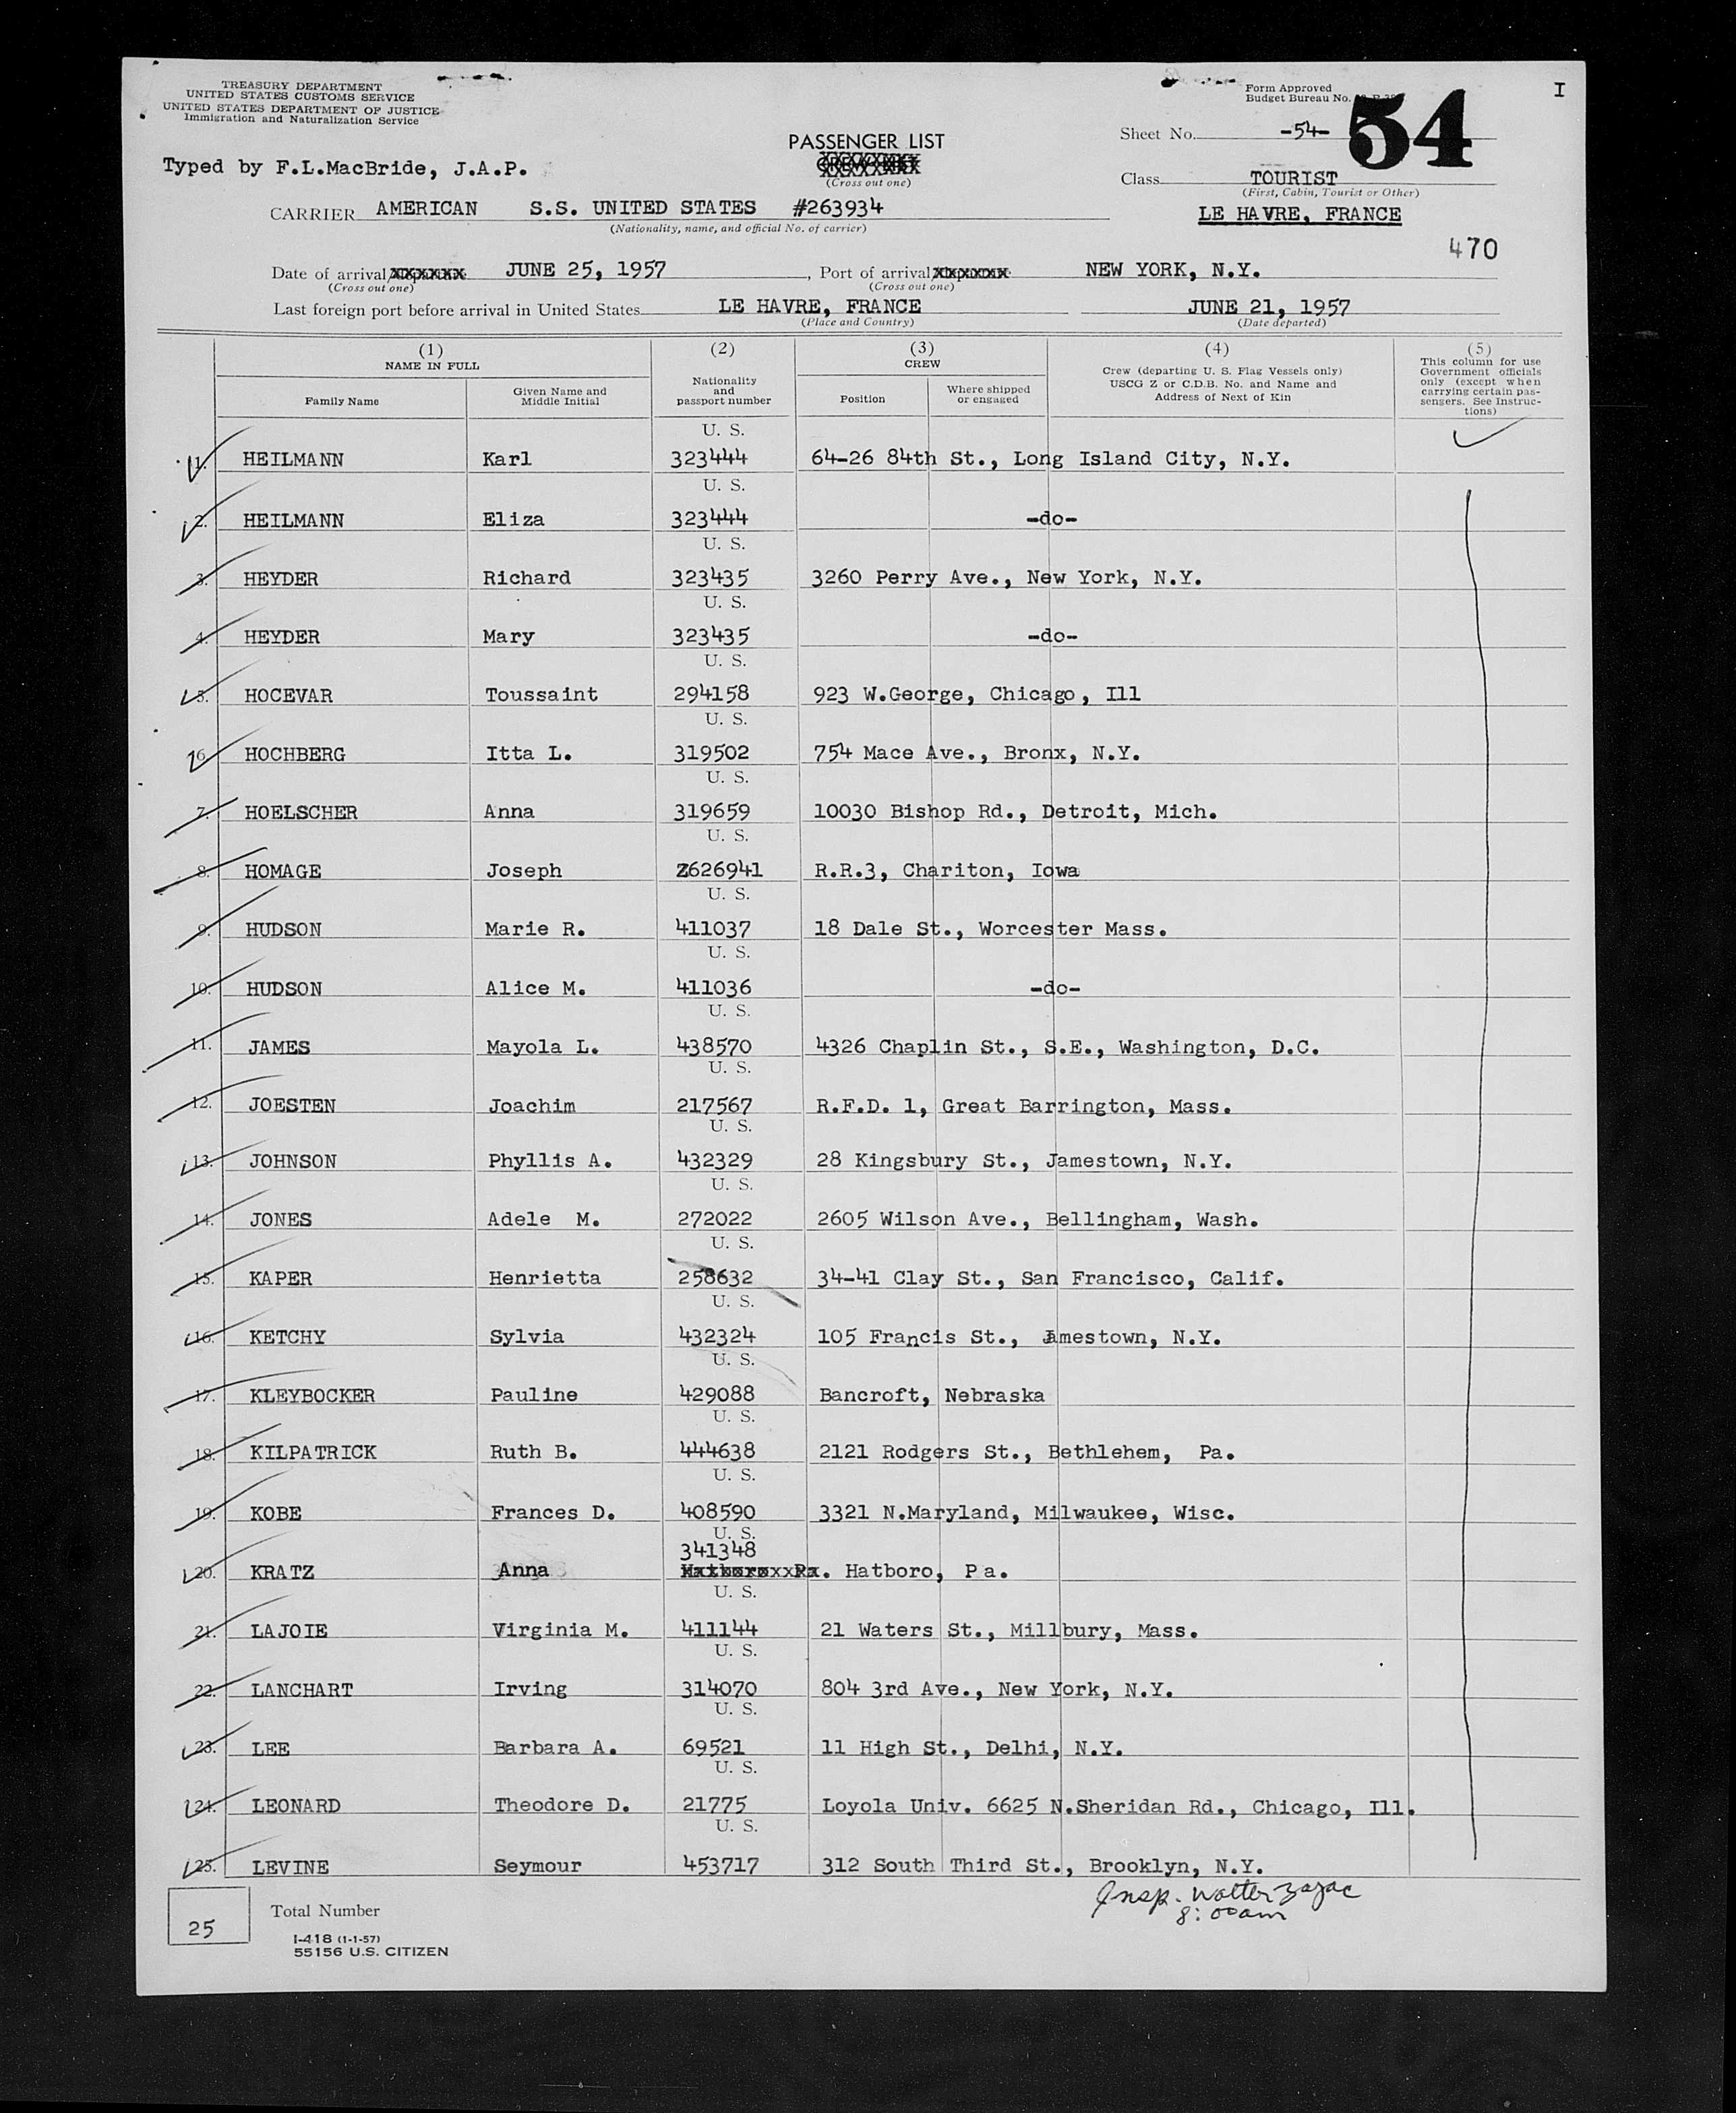 TREASURY DEPARTMENT
UNITED STATES CUSTOMS SERVICE
UNITED STATES DEPARTMENT OF JUSTICE
Immigration and Naturalization Service
Form Approved
Budget Bureau No.
I
54
Sheet No. -54-
PASSENGER LIST
(Cross out one)
Typed by F.L.MacBride, J.A.P.
Class TOURIST
(First, Cabin, Tourist or Other)
CARRIER AMERICAN S.S. UNITED STATES #263934
(Nationality, name, and official No. of carrier)
LE HAVRE, FRANCE
470
Date of arrival JUNE 25, 1957, Port of arrival NEW YORK, N.Y.
(Cross out one) (Cross out one)
Last foreign port before arrival in United States LE HAVRE, FRANCE JUNE 21, 1957
(Place and Country) (Date departed)
(1) NAME IN FULL
Family Name
Given Name and Middle Initial
(2)
Nationality and passport number
(3) CREW
Position
Where shipped or engaged
(4)
Crew (departing U. S. Flag Vessels only) USCG Z or C.D.B. No. and Name and Address of Next of Kin
(5)
This column for use Government officials only (except when carrying certain passengers. See Instructions)
U. S.
1. HEILMANN Karl 323444 64-26 84th St., Long Island City, N.Y.
U. S.
2. HEILMANN Eliza 323444 -do-
U. S.
3. HEYDER Richard 323435 3260 Perry Ave., New York, N.Y.
U. S.
4. HEYDER Mary 323435 -do-
U. S.
5. HOCEVAR Toussaint 294158 923 W.George, Chicago, Ill
U. S.
6. HOCHBERG Itta L. 319502 754 Mace Ave., Bronx, N.Y.
U. S.
7. HOELSCHER Anna 319659 10030 Bishop Rd., Detroit, Mich.
U. S.
8. HOMAGE Joseph Z626941 R.R.3, Chariton, Iowa
U. S.
9. HUDSON Marie R. 411037 18 Dale St., Worcester Mass.
U. S.
10. HUDSON Alice M. 411036 -do-
U. S.
11. JAMES Mayola L. 438570 4326 Chaplin St., S.E., Washington, D.C.
U. S.
12. JOESTEN Joachim 217567 R.F.D. 1, Great Barrington, Mass.
U. S.
13. JOHNSON Phyllis A. 432329 28 Kingsbury St., Jamestown, N.Y.
U. S.
14. JONES Adele M. 272022 2605 Wilson Ave., Bellingham, Wash.
U. S.
15. KAPER Henrietta 258632 34-41 Clay St., San Francisco, Calif.
U. S.
16. KETCHY Sylvia 432324 105 Francis St., Jamestown, N.Y.
U. S.
17. KLEYBOCKER Pauline 429088 Bancroft, Nebraska
U. S.
18. KILPATRICK Ruth B. 444638 2121 Rodgers St., Bethlehem, Pa.
U. S.
19. KOBE Frances D. 408590 3321 N.Maryland, Milwaukee, Wisc.
U. S.
341348
20. KRATZ Anna Hatboro, Pa.
U. S.
21. LAJOIE Virginia M. 411144 21 Waters St., Millbury, Mass.
U. S.
22. LANCHART Irving 314070 804 3rd Ave., New York, N.Y.
U. S.
23. LEE Barbara A. 69521 11 High St., Delhi, N.Y.
U. S.
24. LEONARD Theodore D. 21775 Loyola Univ. 6625 N.Sheridan Rd., Chicago, Ill.
U. S.
25. LEVINE Seymour 453717 312 South Third St., Brooklyn, N.Y.
Insp. Walter Zajac
8:00am
25 Total Number
I-418 (1-1-57)
55156 U.S. CITIZEN